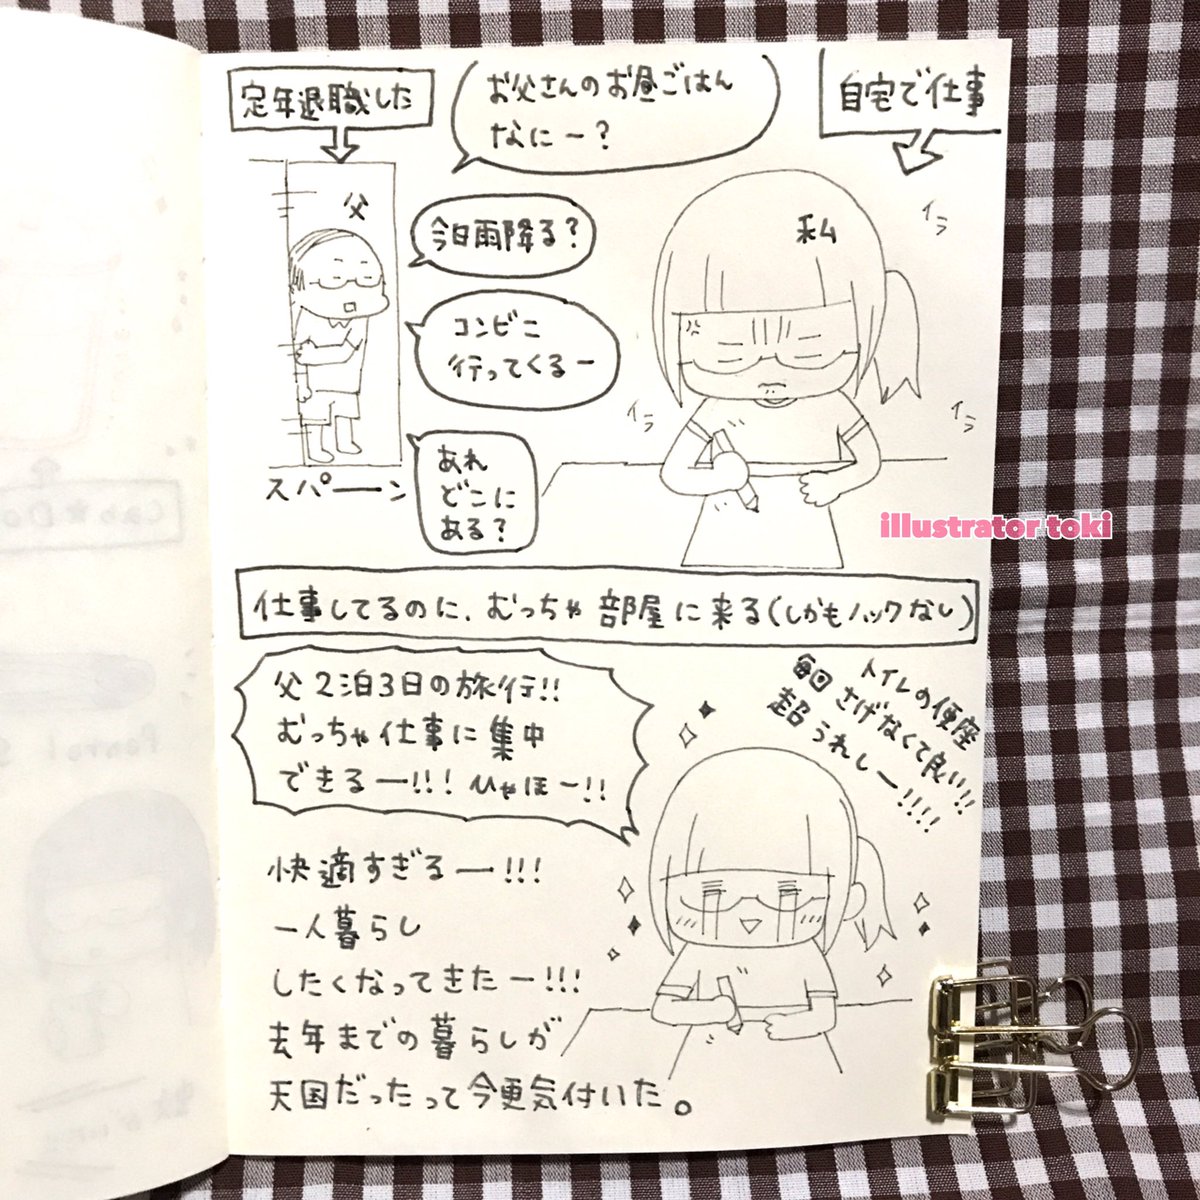 定年退職した
父
お父さんのお昼ごはん
なにー?
自宅で仕事
私
今日雨降る?
コンビニ
行ってくるー
あれ
どこに
ある?
スパーン
イラ
イラ
イラ
illustrator toki
仕事してるのに、むっちゃ部屋に来る(しかもノックなし)
父2泊3日の旅行!!
むっちゃ仕事に集中
できるー!!! ひゃほー!!
トイレの便座
毎回さげなくて良い!!
超うれしー!!!!
快適すぎるー!!!
一人暮らし
したくなってきたー!!!
去年までの暮らしが
天国だったって今更気付いた。